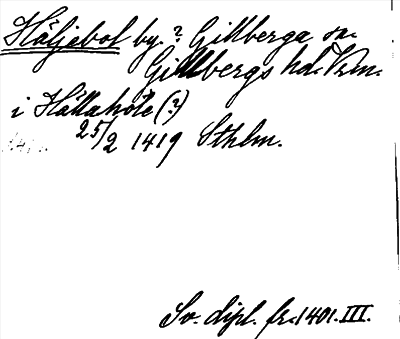 Häljebol by. ? Gillberga sn.
Gillbergs hd. Vrm.
i Hällahöte (?)
25/2 1419 Sthlm.
Sv. dipl. fr. 1401. III.